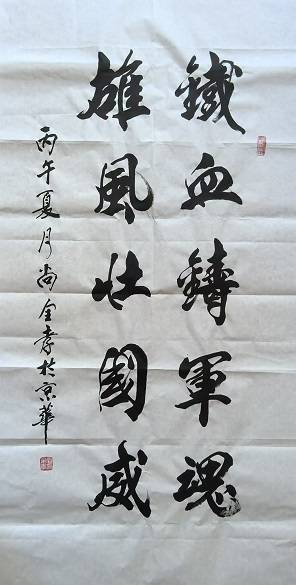 鐵血鑄軍魂
雄風壯國威
丙午夏月尚全孝於京華